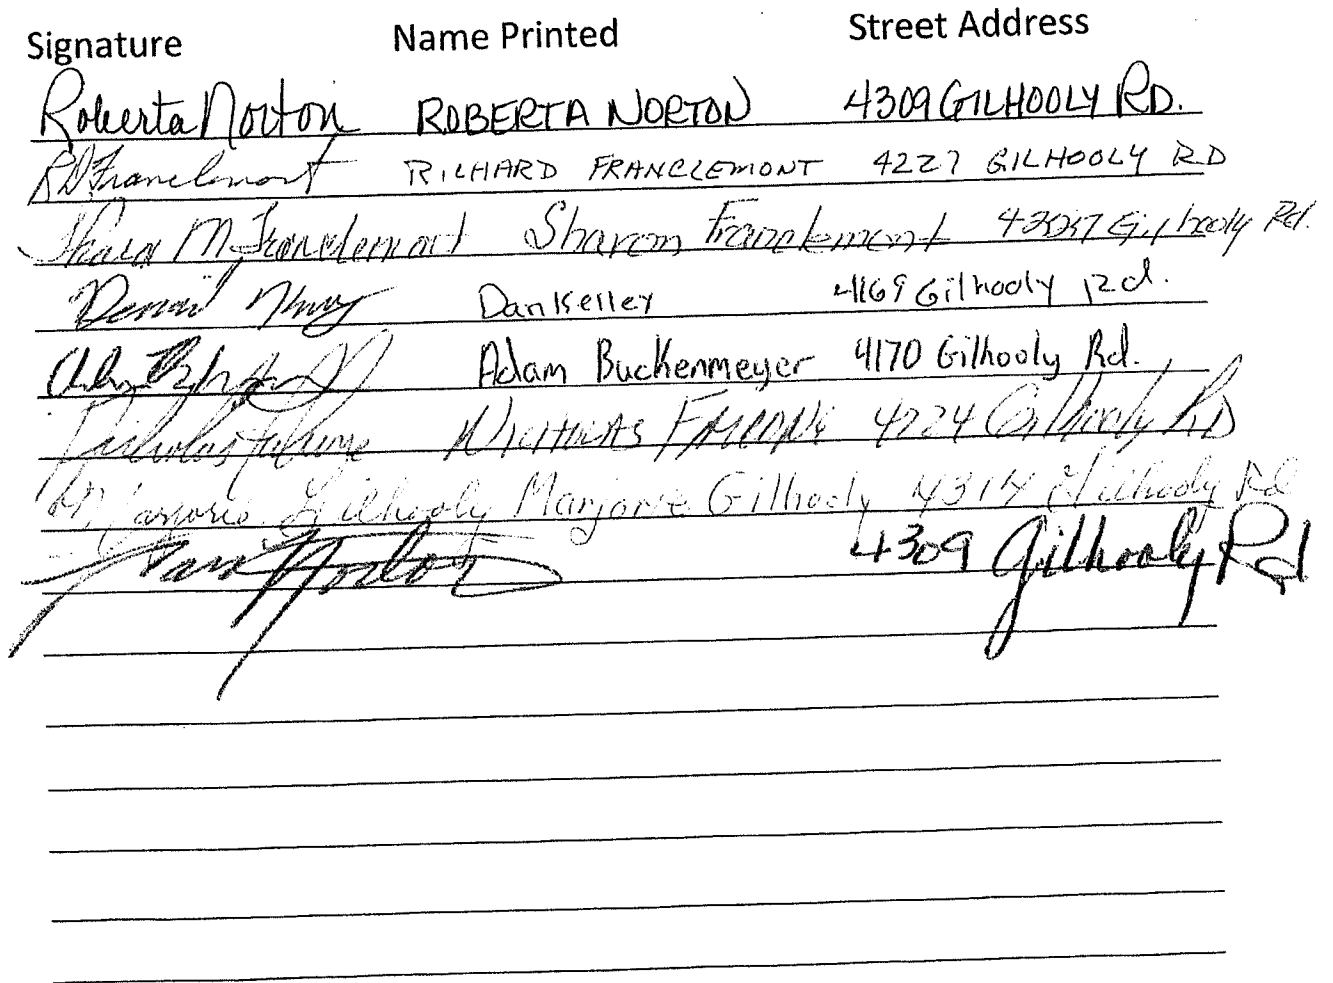 Signature Name Printed Street Address
Roberta Norton ROBERTA NORTON 4309 GILHOOLY RD.
RD Franclemont RICHARD FRANCLEMONT 4227 GILHOOLY RD
M Franclemont Sharon Franclemont Gilhooly Rd.
Dan Kelley 4169 Gilhooly Rd.
Adam Buckenmeyer 4170 Gilhooly Rd.
Nicholas NICHOLAS 4224 Gilhooly RD
Marjorie Gilhooly Marjorie Gilhooly 4314 Gilhooly Rd
Norton 4309 Gilhooly Rd